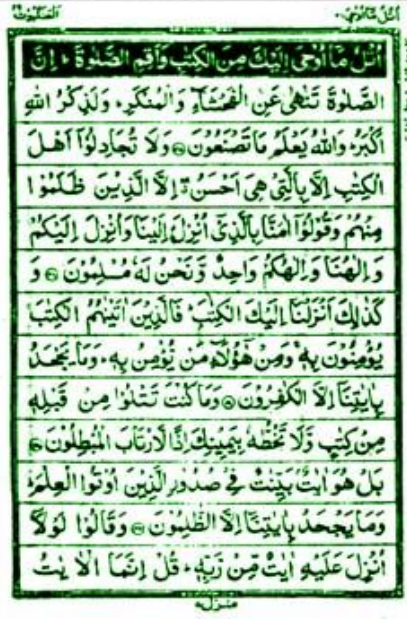 اتل مآ اوحی ۲۱
العنكبوت ۲۹
اُتْلُ مَاۤ اُوْحِیَ اِلَیْكَ مِنَ الْكِتٰبِ وَاَقِمِ الصَّلٰوةَ ؕ اِنَّ
الصَّلٰوةَ تَنْهٰی عَنِ الْفَحْشَآءِ وَالْمُنْكَرِ ؕ وَلَذِكْرُ اللّٰهِ
اَكْبَرُ ؕ وَاللّٰهُ یَعْلَمُ مَا تَصْنَعُوْنَ ۝ وَلَا تُجَادِلُوْۤا اَهْلَ
الْكِتٰبِ اِلَّا بِالَّتِیْ هِیَ اَحْسَنُ ۖ اِلَّا الَّذِیْنَ ظَلَمُوْا
مِنْهُمْ وَقُوْلُوْۤا اٰمَنَّا بِالَّذِیْۤ اُنْزِلَ اِلَیْنَا وَاُنْزِلَ اِلَیْكُمْ
وَاِلٰهُنَا وَاِلٰهُكُمْ وَاحِدٌ وَّنَحْنُ لَهٗ مُسْلِمُوْنَ ۝ وَ
كَذٰلِكَ اَنْزَلْنَاۤ اِلَیْكَ الْكِتٰبَ ؕ فَالَّذِیْنَ اٰتَیْنٰهُمُ الْكِتٰبَ
یُؤْمِنُوْنَ بِهٖ ۚ وَمِنْ هٰۤؤُلَآءِ مَنْ یُّؤْمِنُ بِهٖ ؕ وَمَا یَجْحَدُ
بِاٰیٰتِنَاۤ اِلَّا الْكٰفِرُوْنَ ۝ وَمَا كُنْتَ تَتْلُوْا مِنْ قَبْلِهٖ
مِنْ كِتٰبٍ وَّلَا تَخُطُّهٗ بِیَمِیْنِكَ اِذًا لَّارْتَابَ الْمُبْطِلُوْنَ ۝
بَلْ هُوَ اٰیٰتٌۢ بَیِّنٰتٌ فِیْ صُدُوْرِ الَّذِیْنَ اُوْتُوا الْعِلْمَ ؕ
وَمَا یَجْحَدُ بِاٰیٰتِنَاۤ اِلَّا الظّٰلِمُوْنَ ۝ وَقَالُوْا لَوْلَاۤ
اُنْزِلَ عَلَیْهِ اٰیٰتٌ مِّنْ رَّبِّهٖ ؕ قُلْ اِنَّمَا الْاٰیٰتُ
منزل ۵